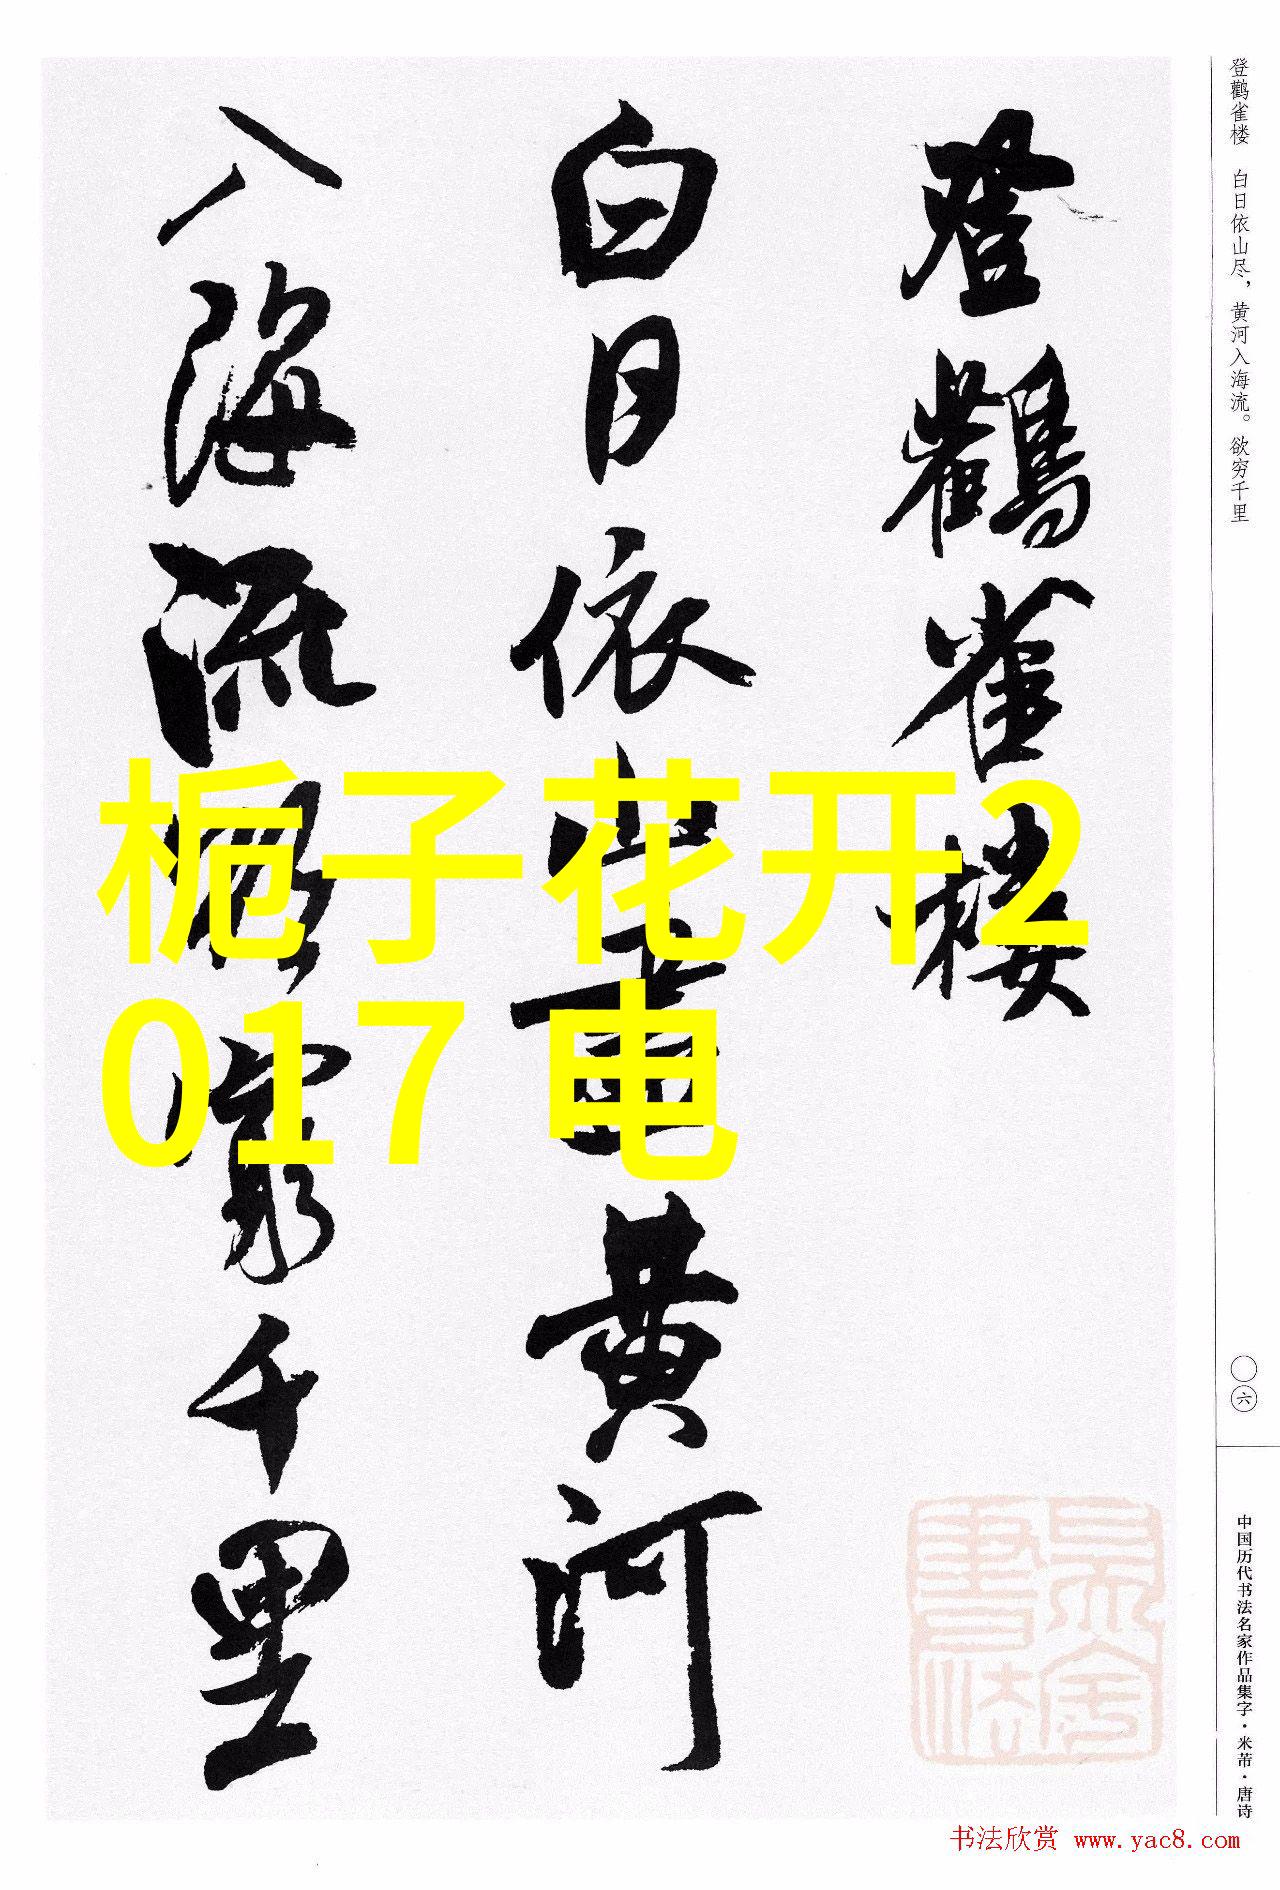 登鹳雀楼
白日依山尽黄河
入海流欲穷千里
栀子花开2
017 电
登鹳雀楼 白日依山尽，黄河入海流。欲穷千里
〇六
中国历代书法名家作品集字·米芾·唐诗
书法欣赏 www.yac8.com